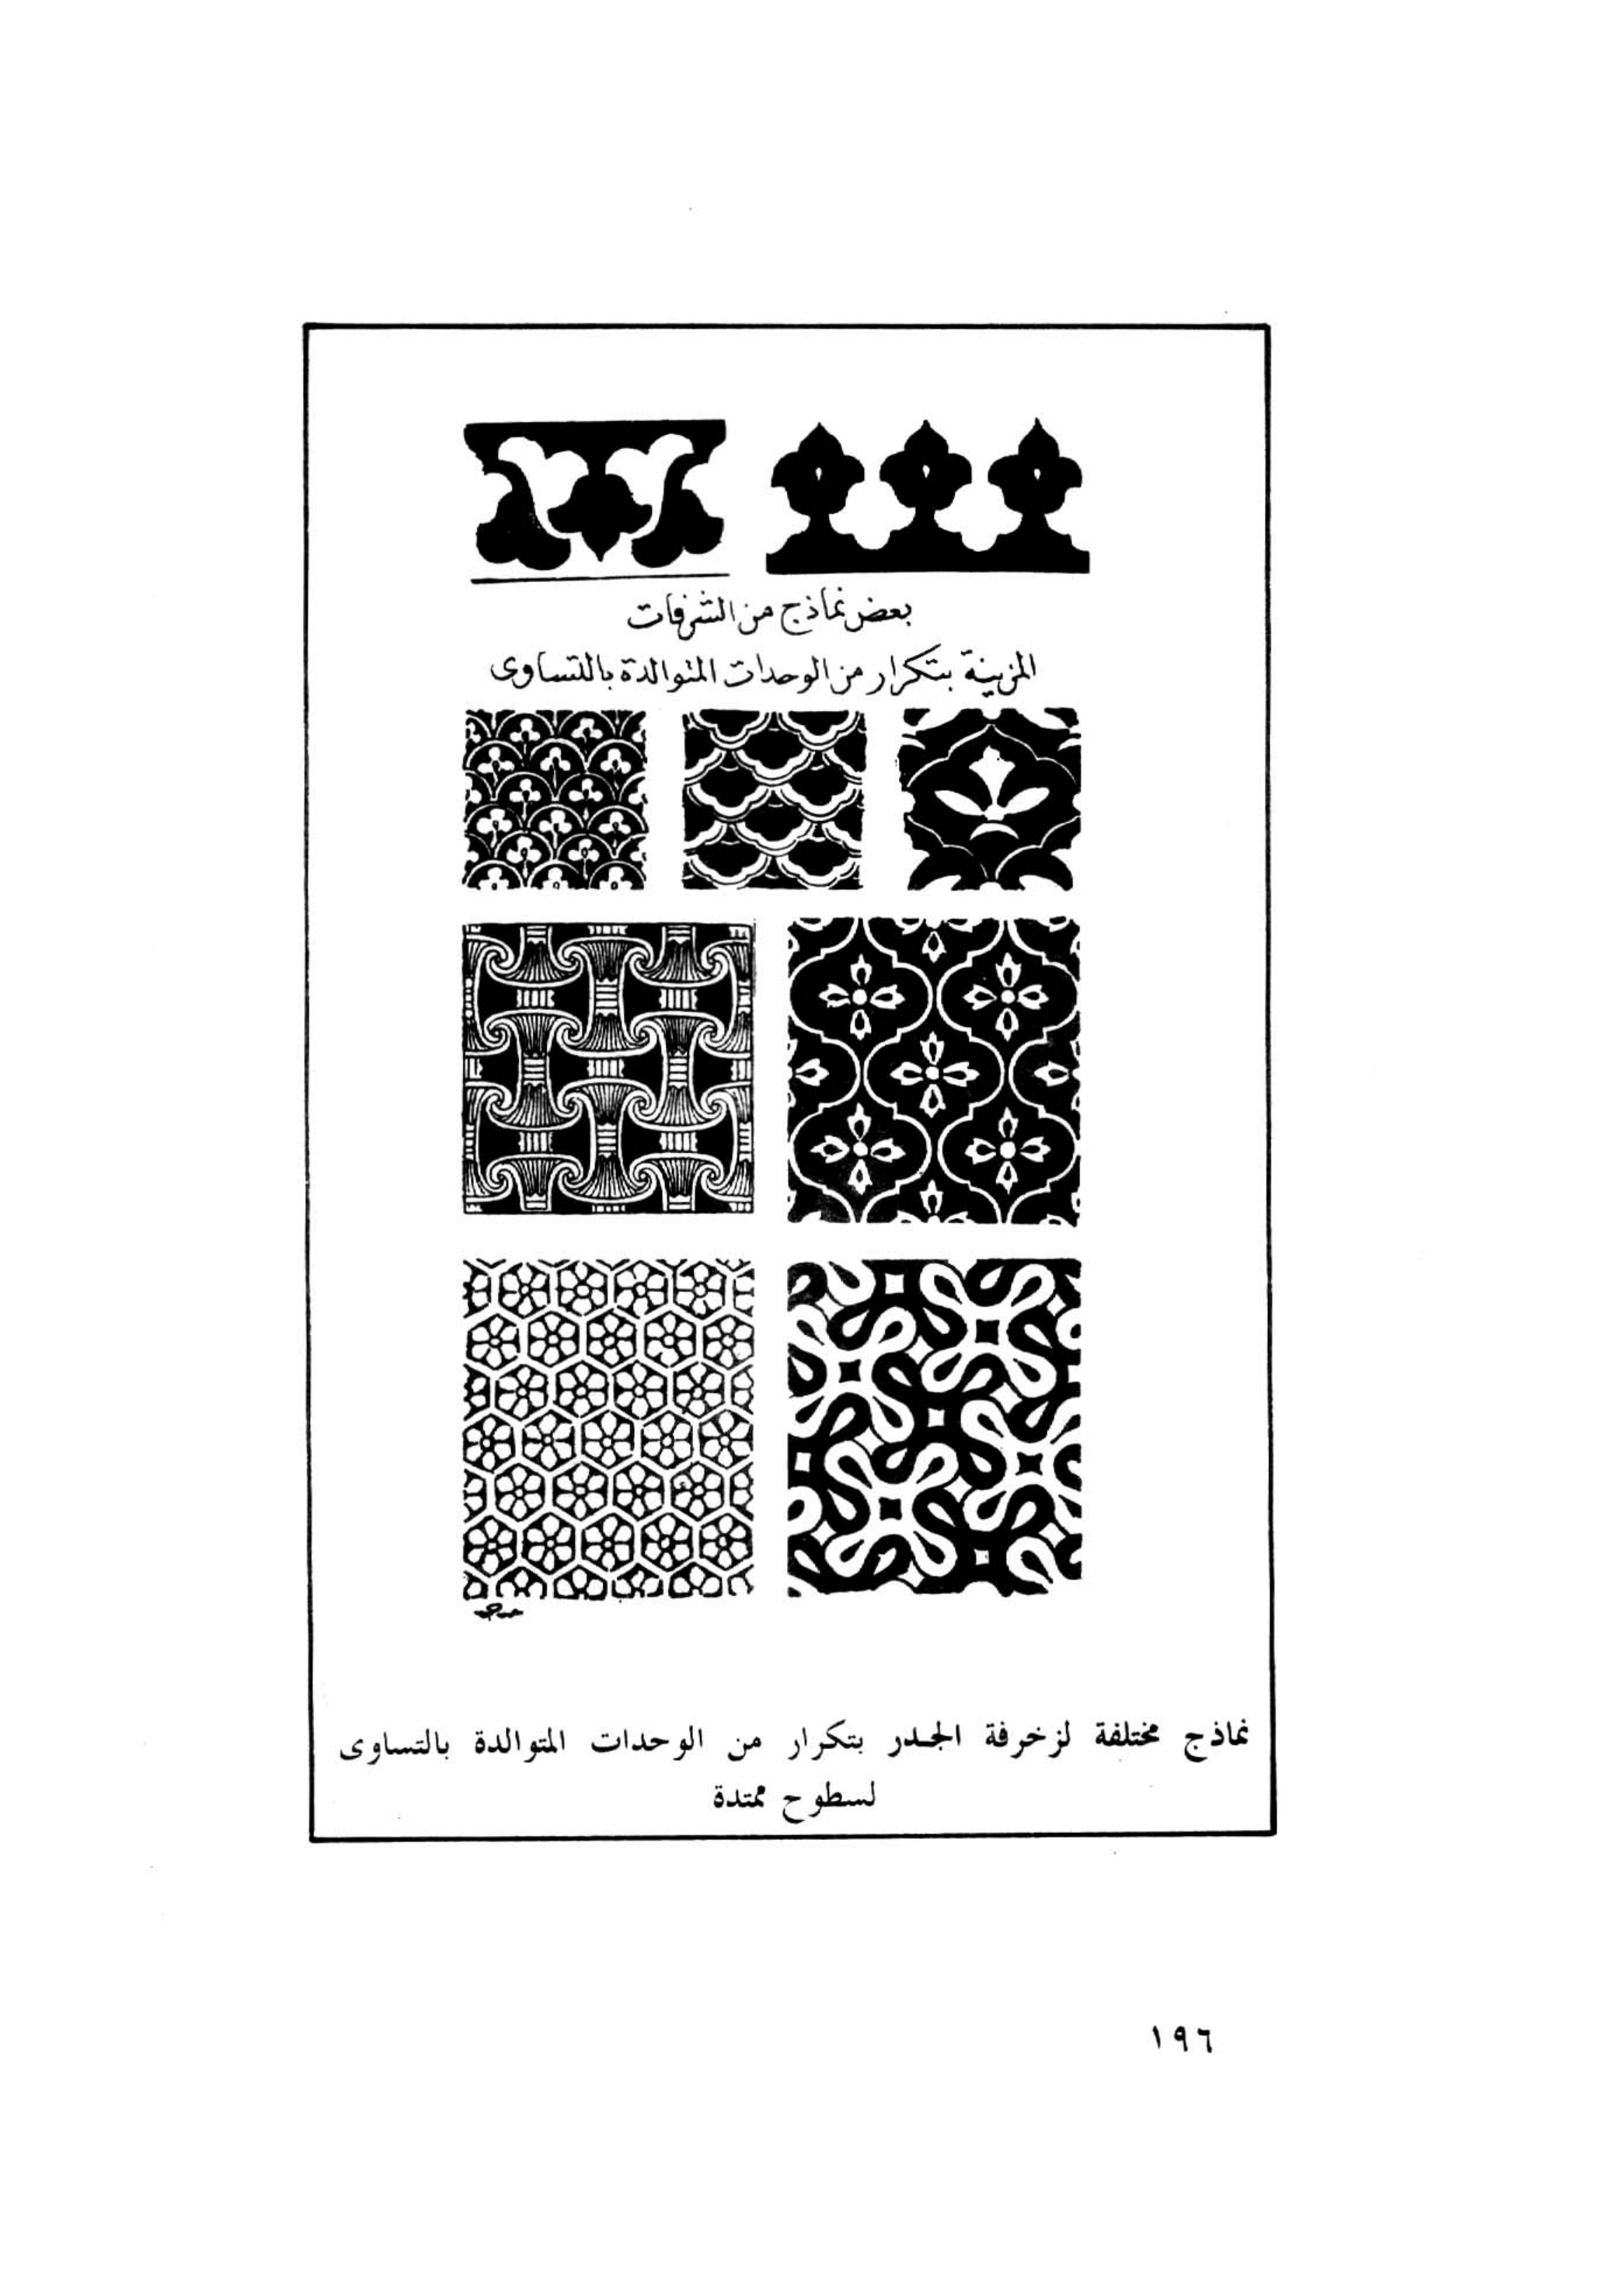 بعض نماذج من الشرفات
المزينة بتكرار من الوحدات المتوالدة بالتساوى
نماذج مختلفة لزخرفة الجدر بتكرار من الوحدات المتوالدة بالتساوى
لسطوح ممتدة
١٩٦